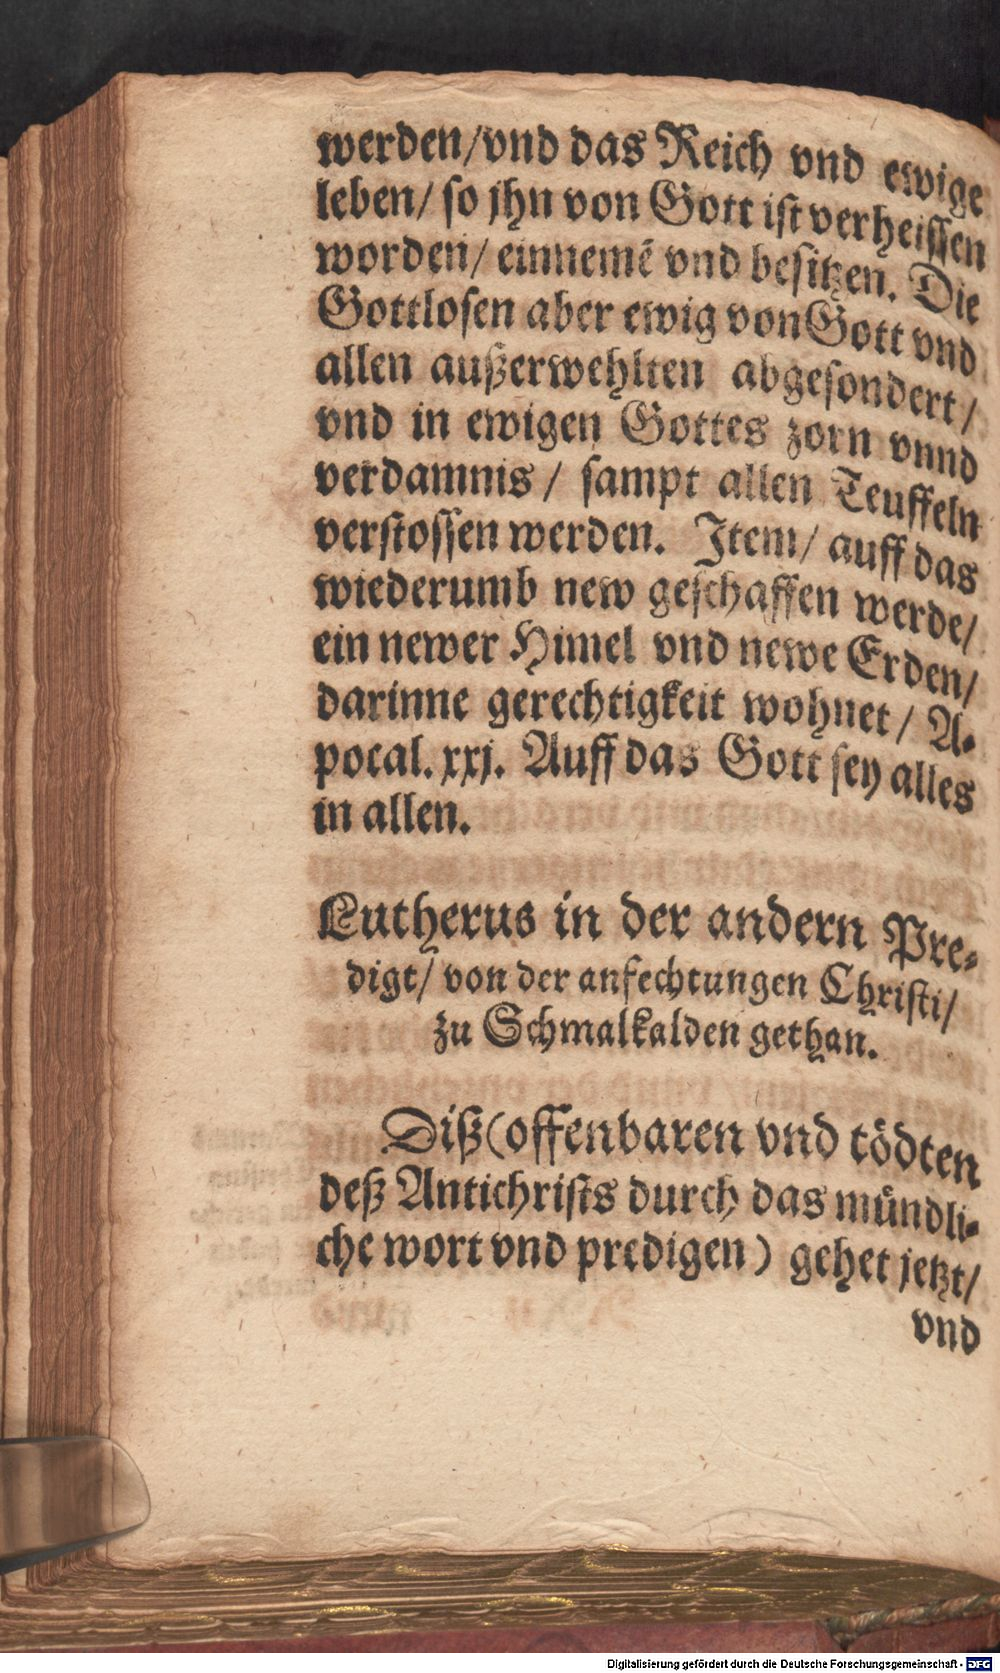 werden/vnd das Reich vnd ewige
leben/ so jhn von Gott ist verheissen
worden/ einnemẽ vnd besitzen. Die
Gottlosen aber ewig von Gott vnd
allen außerwehlten abgesondert/
vnd in ewigen Gottes zorn vnnd
verdamnis/ sampt allen Teuffeln
verstossen werden. Item/ auff das
wiederumb new geschaffen werde/
ein newer Himel vnd newe Erden/
darinne gerechtigkeit wohnet/ A⸗
pocal. xxj. Auff das Gott sey alles
in allen.
Lutherus in der andern Pre⸗
digt/ von der anfechtungen Christi/
zu Schmalkalden gethan.
Diß(offenbaren vnd tödten
deß Antichrists durch das mündli⸗
che wort vnd predigen) gehet jetzt/
vnd
Digitalisierung gefördert durch die Deutsche Forschungsgemeinschaft - DFG